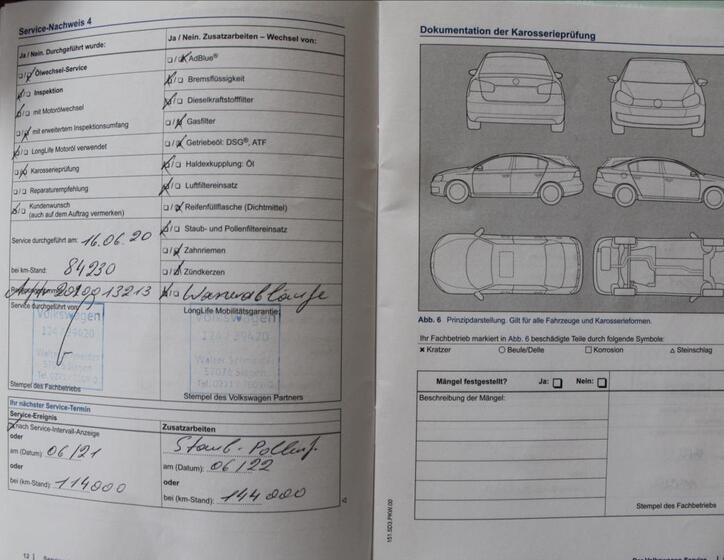 Service-Nachweis 4
Ja / Nein. Durchgeführt wurde:
Ölwechsel-Service
Inspektion
mit Motorölwechsel
mit erweitertem Inspektionsumfang
LongLife Motoröl verwendet
Karosserieprüfung
Reparaturempfehlung
Kundenwunsch
(auch auf dem Auftrag vermerken)
Service durchgeführt am: 16.06.20
bei km-Stand: 84230
Service durchgeführt von:
Volkswagen
Stempel des Fachbetriebs
Ja / Nein. Zusatzarbeiten – Wechsel von:
AdBlue®
Bremsflüssigkeit
Dieselkraftstofffilter
Gasfilter
Getriebeöl: DSG®, ATF
Haldexkupplung: Öl
Luftfiltereinsatz
Reifenfüllflasche (Dichtmittel)
Staub- und Pollenfiltereinsatz
Zahnriemen
Zündkerzen
Wasserabläufe
LongLife Mobilitätsgarantie:
Volkswagen
57076 Siegen
Stempel des Volkswagen Partners
Ihr nächster Service-Termin
Service-Ereignis
nach Service-Intervall-Anzeige
oder
am (Datum): 06/21
oder
bei (km-Stand): 114000
Zusatzarbeiten
Staub-Pollenf.
am (Datum): 06/22
oder
bei (km-Stand): 144 000
12
Dokumentation der Karosserieprüfung
Abb. 6 Prinzipdarstellung. Gilt für alle Fahrzeuge und Karosserieformen.
Ihr Fachbetrieb markiert in Abb. 6 beschädigte Teile durch folgende Symbole:
× Kratzer ○ Beule/Delle □ Korrosion △ Steinschlag
Mängel festgestellt? Ja: □ Nein: □
Beschreibung der Mängel:
Stempel des Fachbetriebs
151.5D3.PKW.00